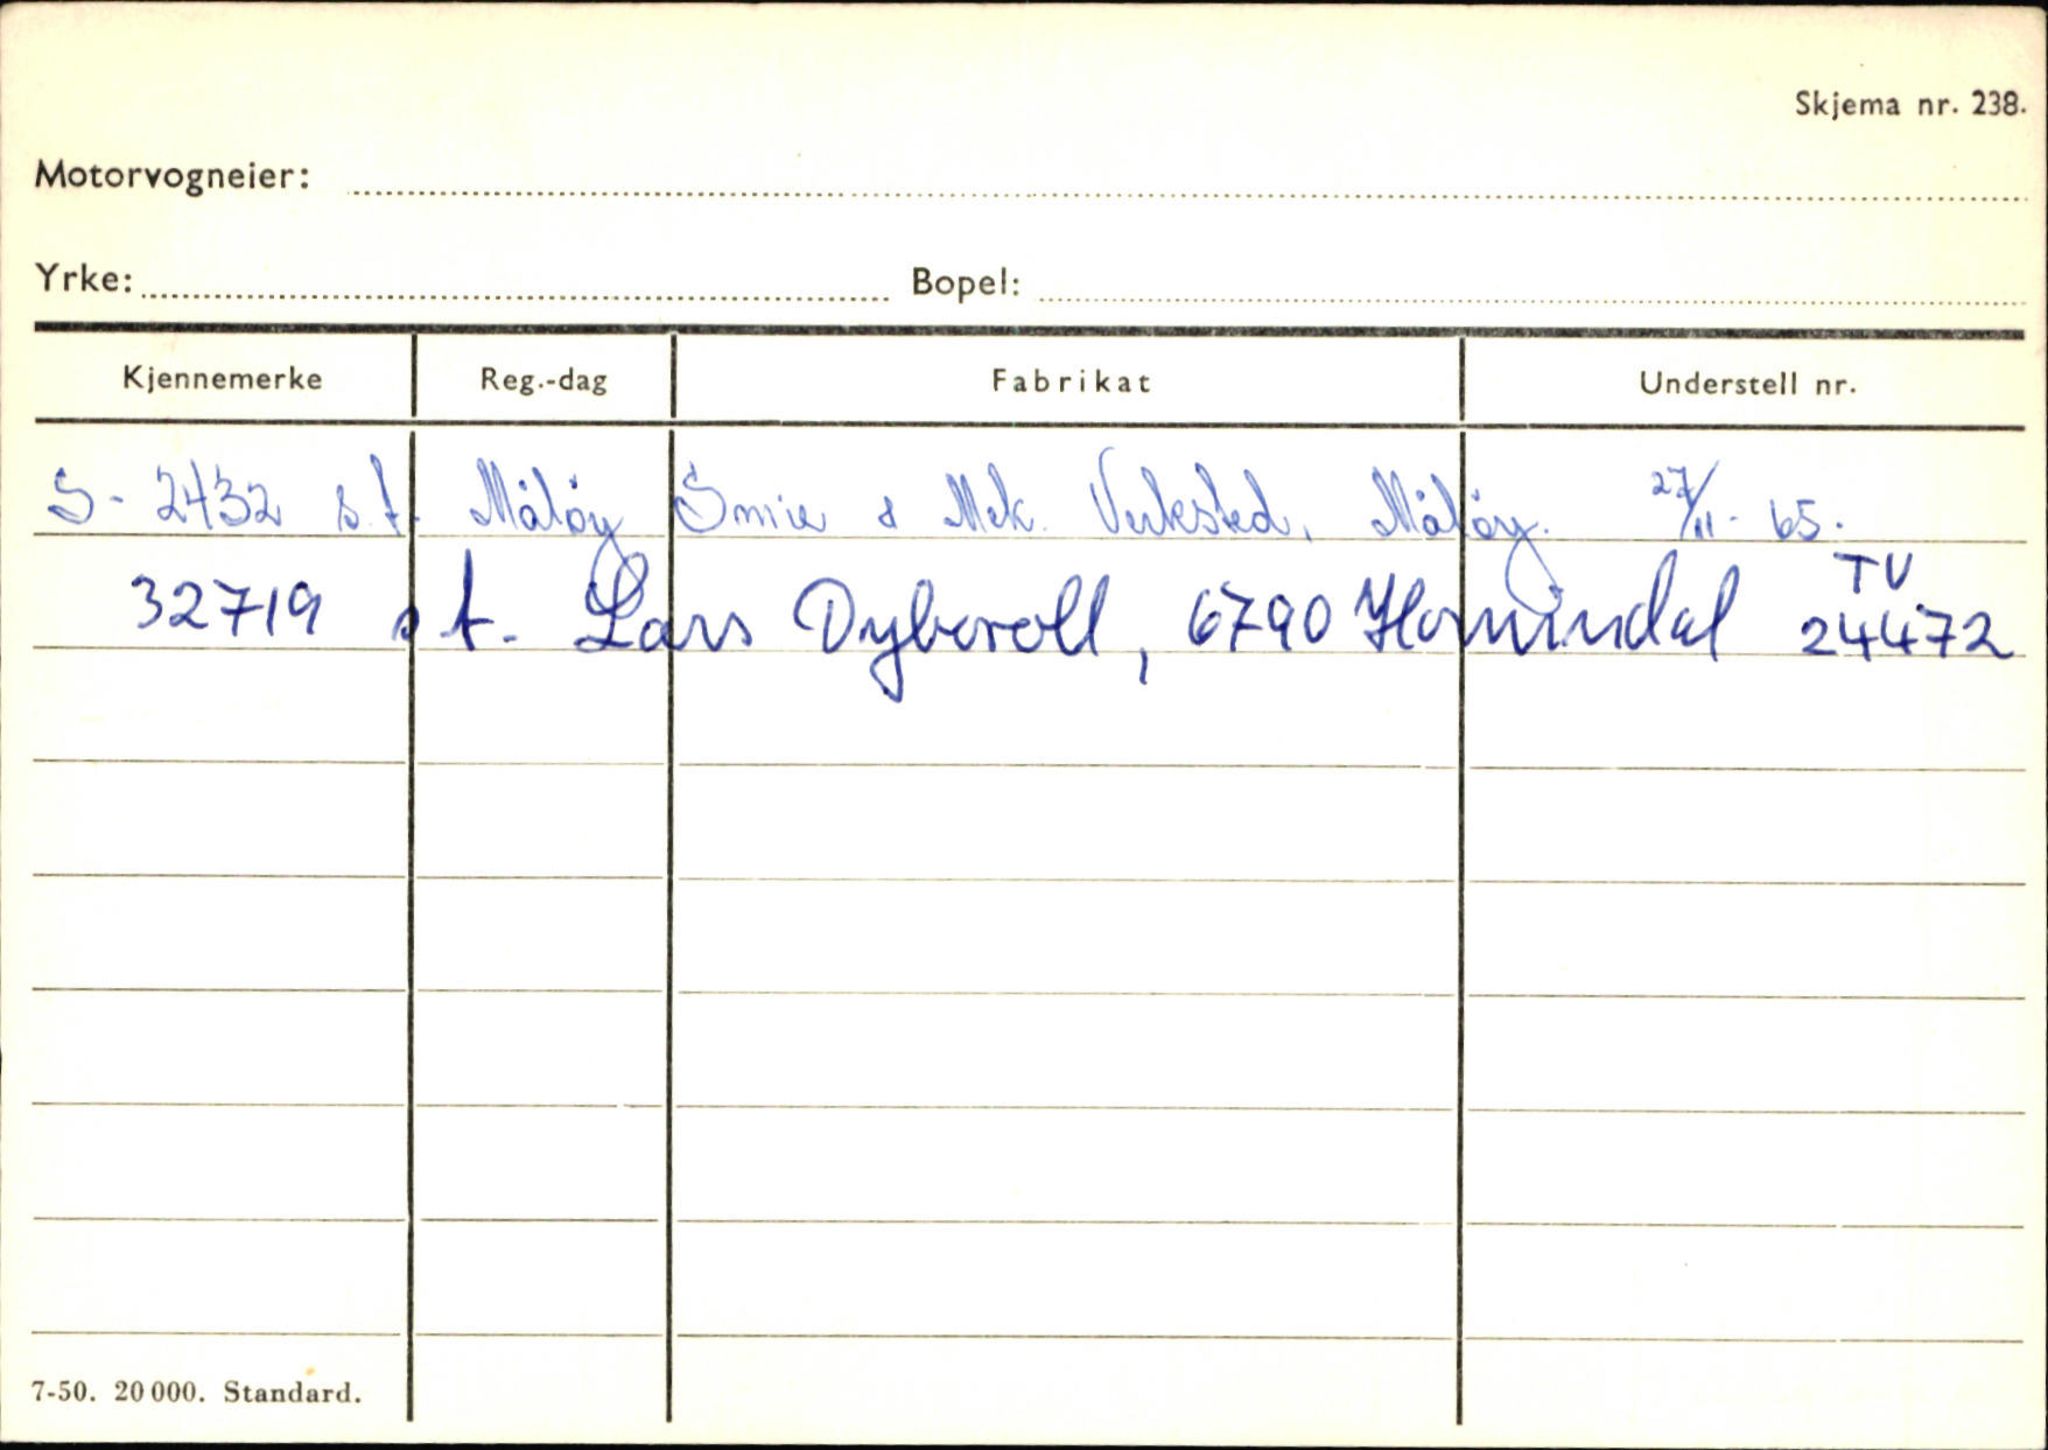 Skjema nr. 238.
Motorvogneier:
Yrke: Bopel:
Kjennemerke Reg.-dag Fabrikat Understell nr.
S- 2432 s.t. Måløy Smie & Mek. Verksted, Måløy. 27/11- 65.
32719 s.t. Lars Dybvoll, 6790 Hornindal TV 24472
7-50. 20 000. Standard.